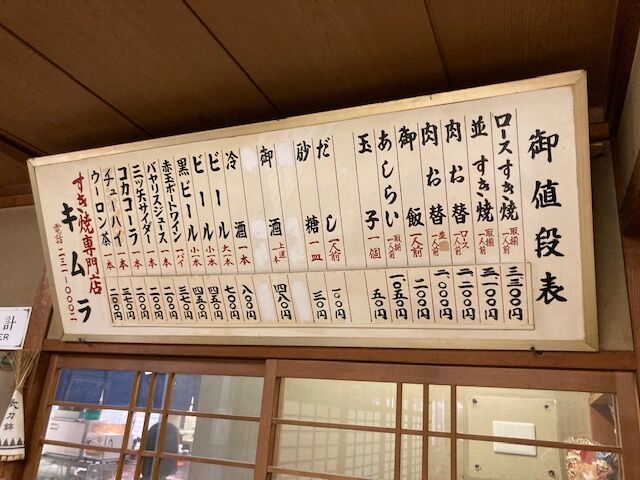 御値段表
ロースすき焼 一人前取揃 三三〇〇円
並すき焼 一人前取揃 三一〇〇円
肉お替 ロース一人前 二二〇〇円
肉お替 並一人前 二〇〇〇円
御飯 一人前
あしらい 一人前取揃 一〇五〇円
玉子 一個 五〇円
だし 一人前 一〇〇円
砂糖 一皿 三〇円
御酒 上選一本 四八〇円
冷酒 一本 八〇〇円
ビール 大一本 七〇〇円
ビール 小一本 四五〇円
黒ビール 小一本 四五〇円
赤玉ポートワイン 一パイ 三七〇円
バヤリスジュース 一本 二〇〇円
三ツ矢サイダー 一本 二〇〇円
コカコーラ 一本 二〇〇円
チューハイ 一本 三七〇円
ウーロン茶 一本 二〇〇円
すき焼専門店
キムラ
電話 二三一-〇〇〇二
計
ER
長刀鉾